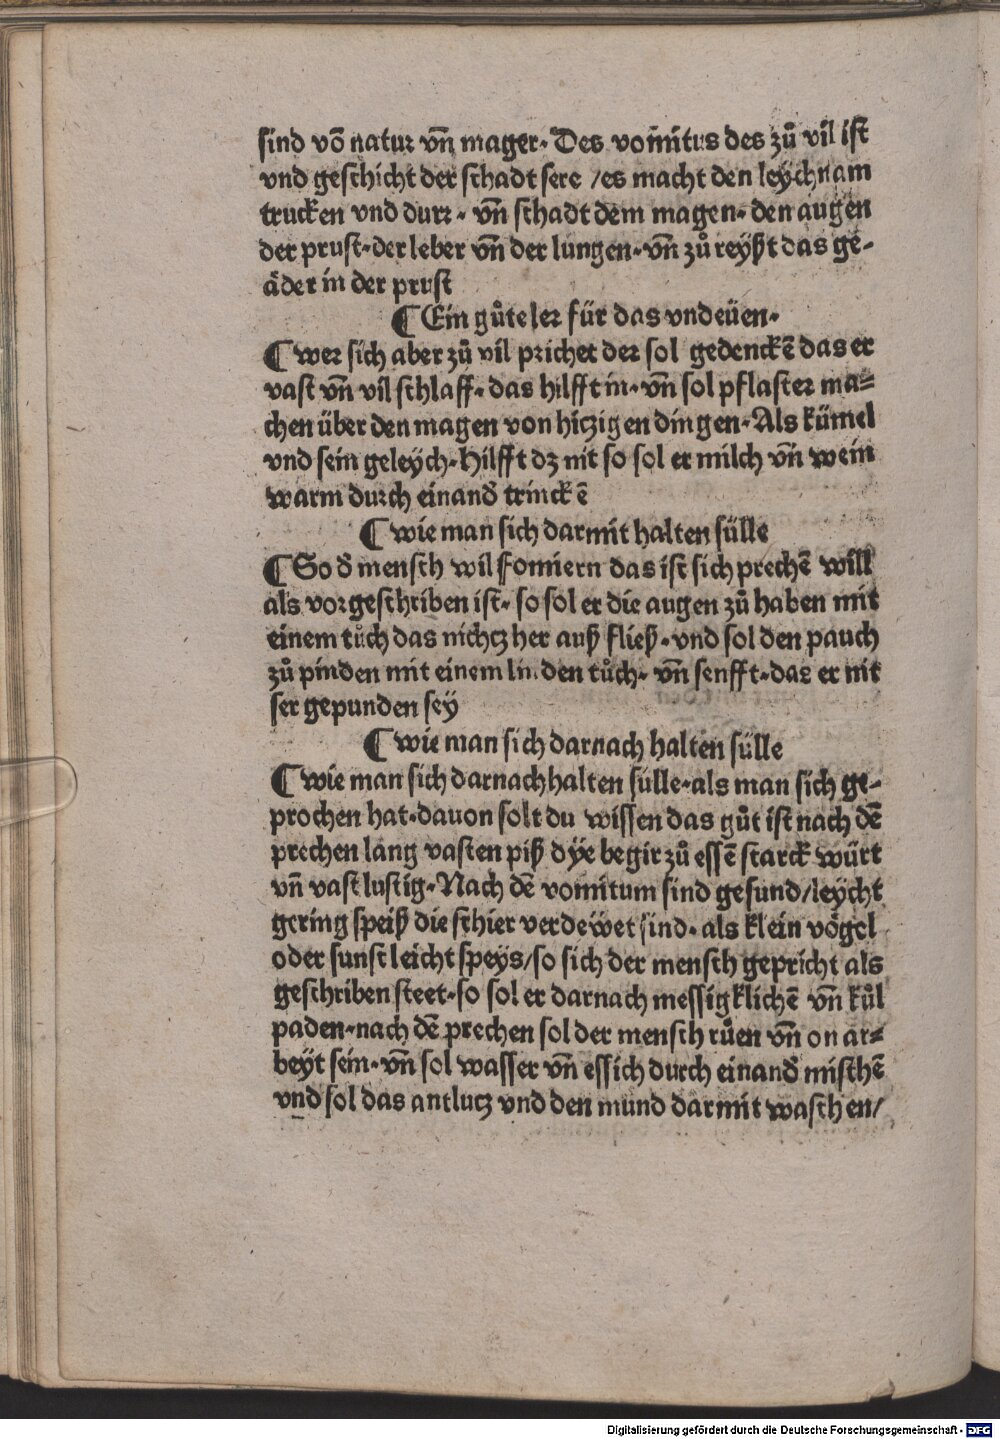 sind võ natur vñ mager. Des vomitus des zů vil ist
vnd geschicht der schadt sere /es macht den leychnam
trucken vnd durr. vñ schadt dem magen. den augen
der prust. der leber vñ der lungen. vñ zů reyßt das ge-
äder in der prust
¶ Ein gůte ler für das vndeüen.
¶ wer sich aber zů vil prichet der sol gedenckẽ das er
vast vñ vil schlaff. das hilfft in. vñ sol pflaster ma-
chen über den magen von hitzigen dingen. Als kümel
vnd sein geleych. Hilfft dz nit so sol er milch vñ wein
warm durch einand̾ trinckẽ
¶ wie man sich darmit halten sülle
¶ So d̾ mensch wil fomiern das ist sich prechẽ will
als vorgeschriben ist. so sol er die augen zů haben mit
einem tůch das nichtz her auß fließ. vnd sol den pauch
zů pinden mit einem linden tůch. vñ senfft. das er nit
ser gepunden sey
¶ wie man sich darnach halten sülle
¶ wie man sich darnach halten sülle. als man sich ge-
prochen hat. dauon solt du wissen das gůt ist nach dẽ
prechen lang vasten piß dye begir zů essẽ starck würt
vñ vast lustig. Nach dẽ vomitum sind gesund/leycht
gering speiß die schier verdewet sind. als klein vögel
oder sunst leicht speys/so sich der mensch gepricht als
geschriben steet. so sol er darnach messigklichẽ vñ kůl
paden. nach dẽ prechen sol der mensch růen vñ on ar-
beyt sein. vñ sol wasser vñ essich durch einand̾ mischẽ
vnd sol das antlutz vnd den mund darmit waschen/
Digitalisierung gefördert durch die Deutsche Forschungsgemeinschaft - DFG